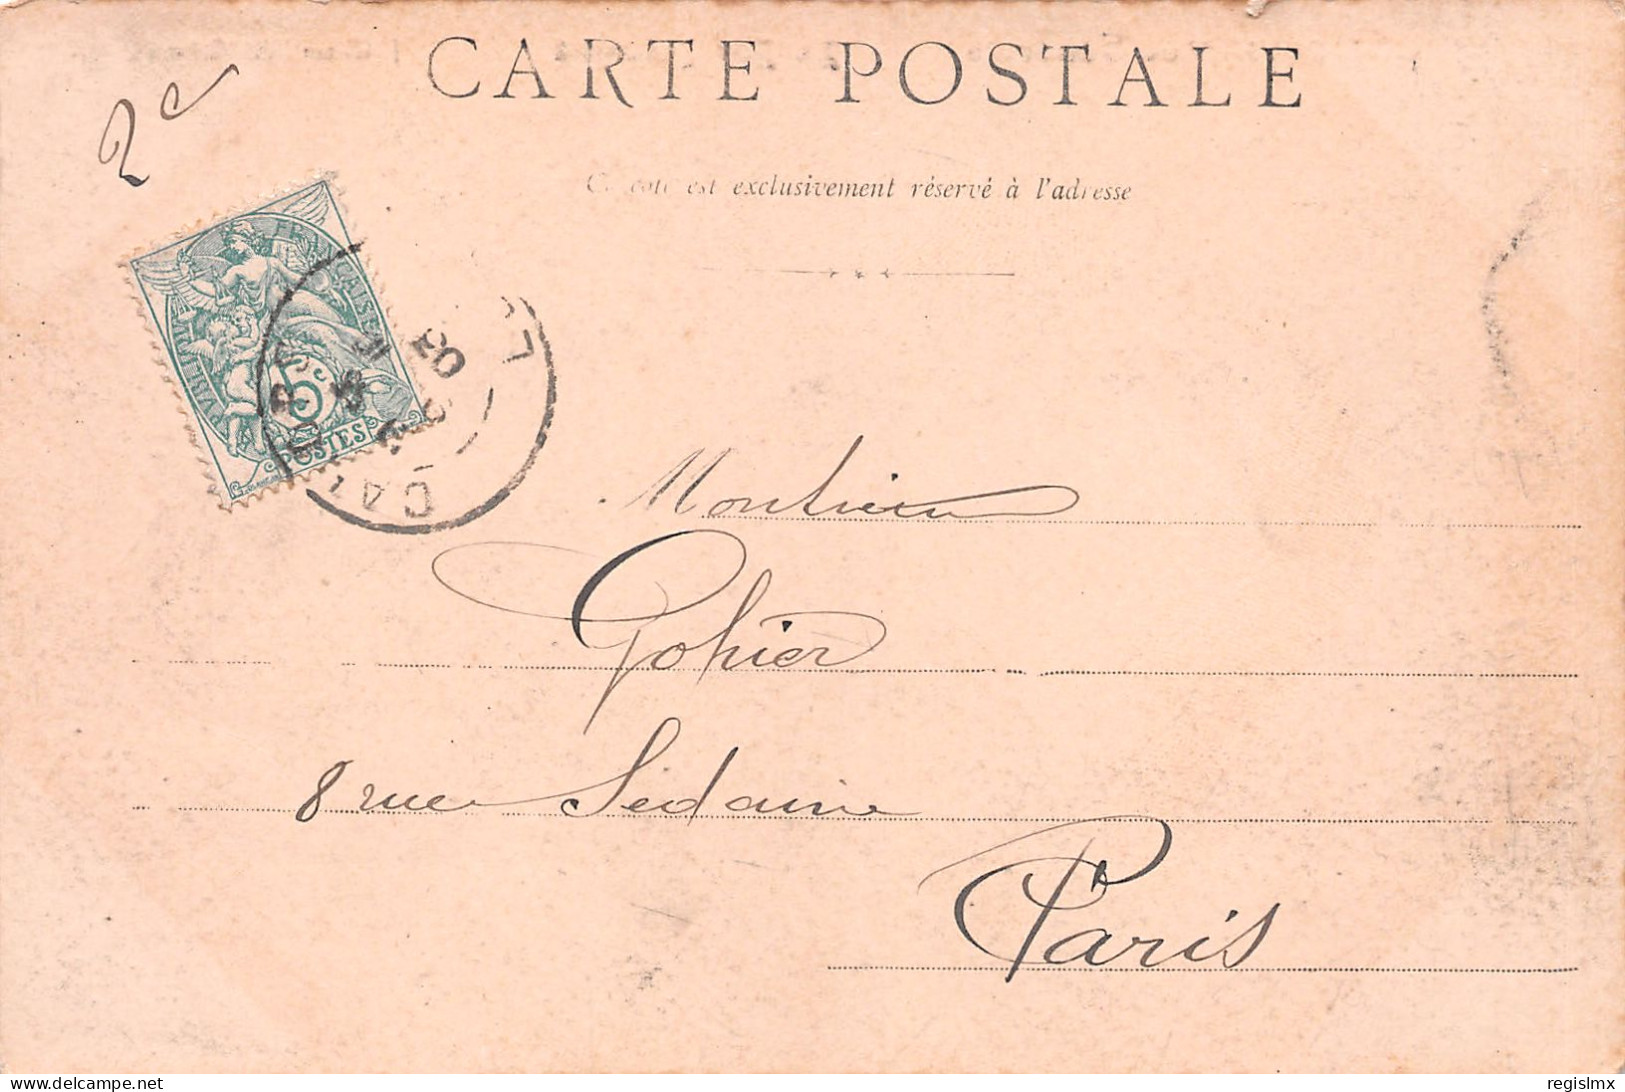 CARTE POSTALE
2c
Ce côté est exclusivement réservé à l'adresse
REPUBLIQUE FRANÇAISE
5c
POSTES
Monsieur
Gohier
8 rue Sedaine
Paris
www.delcampe.net
regislmx